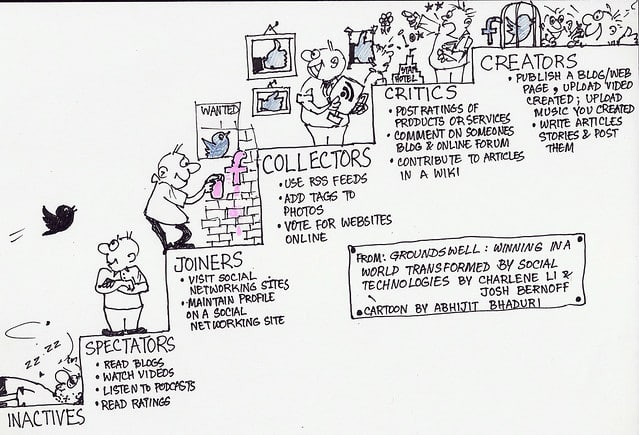 f
CREATORS
• PUBLISH A BLOG/WEB
PAGE, UPLOAD VIDEO
CREATED; UPLOAD
MUSIC YOU CREATED
• WRITE ARTICLES
STORIES & POST
THEM
HOTEL
CRITICS
• POST RATINGS OF
PRODUCTS OR SERVICES
• COMMENT ON SOMEONES
BLOG & ONLINE FORUM
• CONTRIBUTE TO ARTICLES
IN A WIKI
WANTED
f
COLLECTORS
• USE RSS FEEDS
• ADD TAGS TO
PHOTOS
• VOTE FOR WEBSITES
ONLINE
JOINERS
• VISIT SOCIAL
NETWORKING SITES
• MAINTAIN PROFILE
ON A SOCIAL
NETWORKING SITE
SPECTATORS
• READ BLOGS
• WATCH VIDEOS
• LISTEN TO PODCASTS
• READ RATINGS
ZZ ZZ
INACTIVES
FROM: GROUNDSWELL: WINNING IN A
WORLD TRANSFORMED BY SOCIAL
TECHNOLOGIES BY CHARLENE LI &
JOSH BERNOFF
CARTOON BY ABHIJIT BHADURI